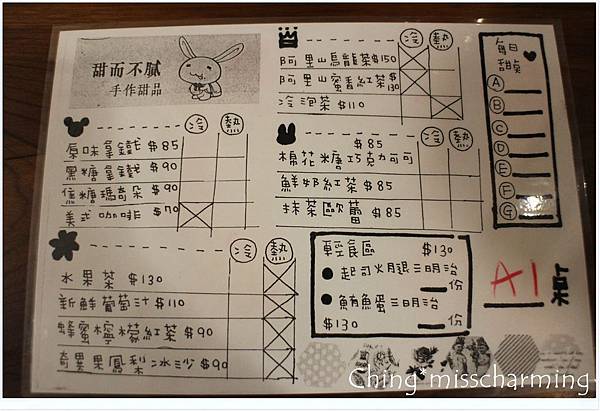 甜而不膩
手作甜品
冷 熱
原味拿鐵 $85
黑糖拿鐵 $90
焦糖瑪奇朵 $90
美式咖啡 $70
冷 熱
水果茶 $130
新鮮葡萄汁 $110
蜂蜜檸檬紅茶 $90
奇異果鳳梨冰沙 $90
冷 熱
阿里山烏龍茶 $150
阿里山蜜香紅茶 $130
冷泡茶 $110
冷 熱
棉花糖巧克力可可 $85
鮮奶紅茶 $85
抹茶歐蕾 $85
輕食區 $130
起司火腿三明治
份
鮪魚蛋三明治
$130 份
每日
甜點
A
B
C
D
E
F
G
A1 桌
Ching*misscharming